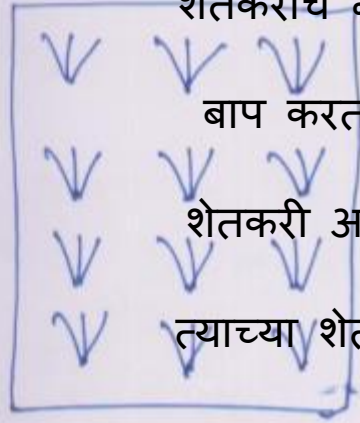 शेतकरीच
बाप करत
शेतकरी अ
त्याच्या शेत